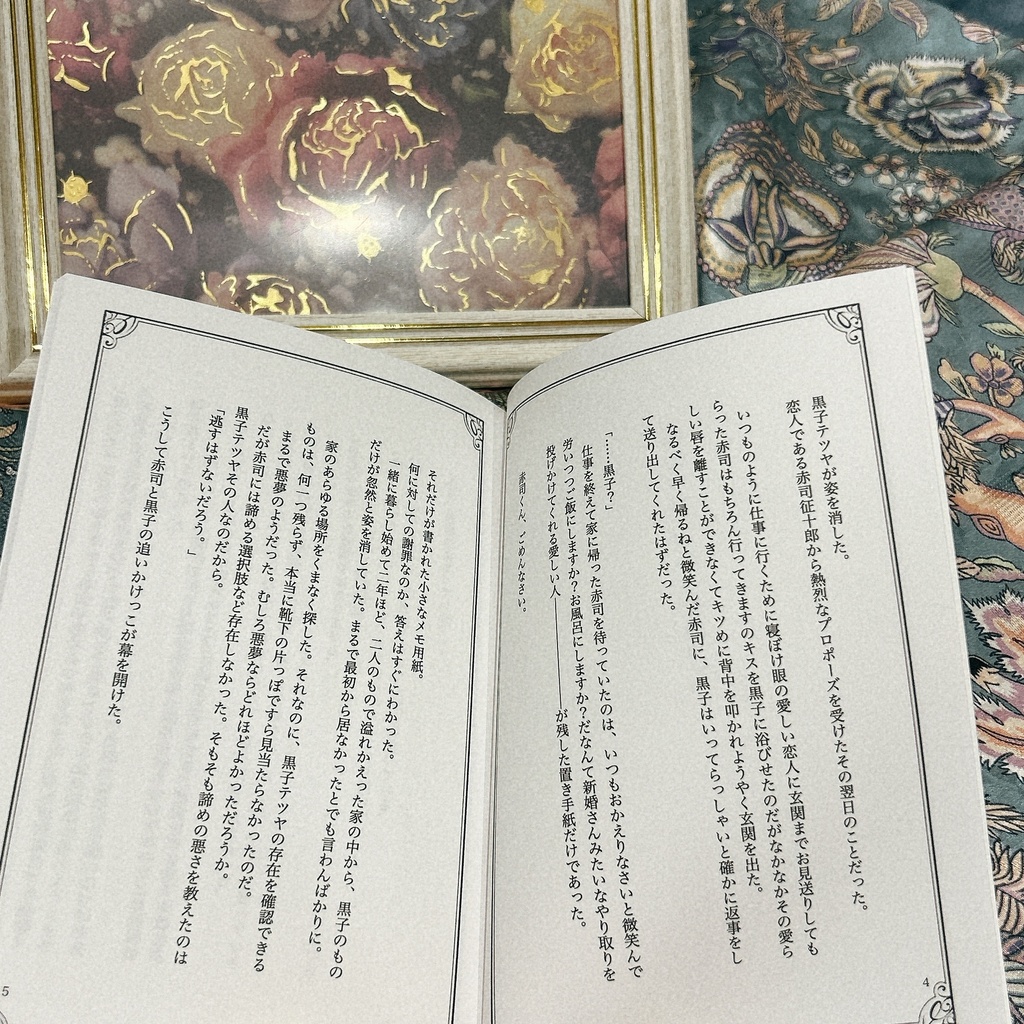 黒子テツヤが姿を消した。
恋人である赤司征十郎から熱烈なプロポーズを受けたその翌日のことだった。
いつものように仕事に行くために寝ぼけ眼の愛しい恋人に玄関までお見送りしても
らった赤司はもちろん行ってきますのキスを黒子に浴びせたのだがなかなかその愛ら
しい唇を離すことができなくてキツめに背中を叩かれようやく玄関を出た。
なるべく早く帰るねと微笑んだ赤司に、黒子はいってらっしゃいと確かに返事をし
て送り出してくれたはずだった。
「……黒子？」
仕事を終えて家に帰った赤司を待っていたのは、いつもおかえりなさいと微笑んで
労いつつご飯にしますか？お風呂にしますか？だなんて新婚さんみたいなやり取りを
投げかけてくれる愛しい人――――――が残した置き手紙だけであった。
赤司くん、ごめんなさい。
4
それだけが書かれた小さなメモ用紙。
何に対しての謝罪なのか、答えはすぐにわかった。
一緒に暮らし始めて二年ほど、二人のもので溢れかえった家の中から、黒子のもの
だけが忽然と姿を消していた。まるで最初から居なかったとでも言わんばかりに。
家のあらゆる場所をくまなく探した。それなのに、黒子テツヤの存在を確認できる
ものは、何一つ残らず、本当に靴下の片っぽですら見当たらなかったのだ。
まるで悪夢のようだった。むしろ悪夢ならどれほどよかっただろうか。
だが赤司には諦める選択肢など存在しなかった。そもそも諦めの悪さを教えたのは
黒子テツヤその人なのだから。
「逃すはずないだろう。」
こうして赤司と黒子の追いかけっこが幕を開けた。
5